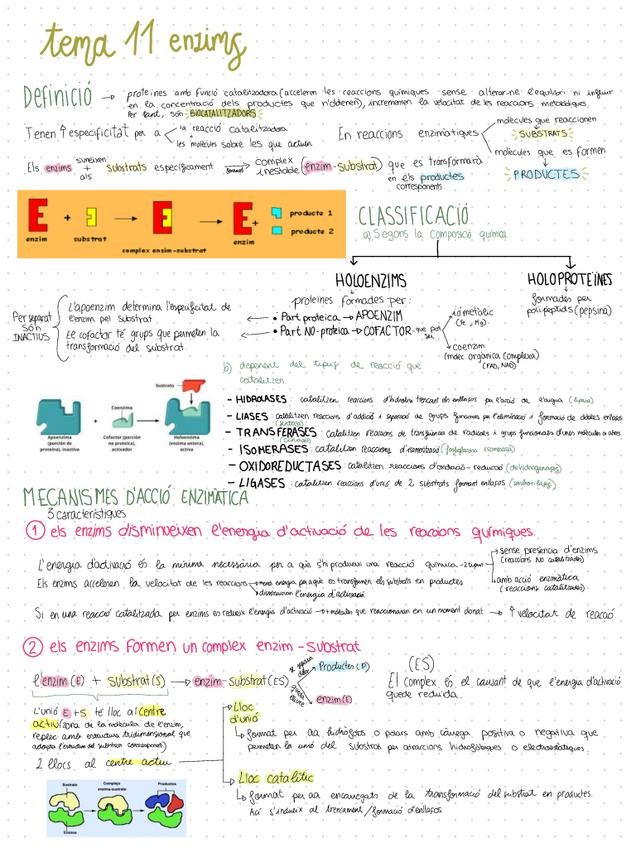 tema 11 enzims
Definició → proteïnes amb funció catalitzadora (acceleren les reaccions químiques sense alterar-ne l'equilibri ni influir
en la concentració dels productes que n'obtenen), incrementen la velocitat de les reaccions metabòliques.
Per tant, són BIOCATALITZADORS
Tenen ↑ especificitat per a
la reacció catalitzadora
les molècules sobre les que actuen
En reaccions enzimàtiques
molècules que reaccionen
SUBSTRATS
molècules que es formen
PRODUCTES
Els enzims s'uneixen als substrats específicament → complex inestable (enzim-substrat) que es transformarà
en els productes
corresponents
E + → E → E +
enzim substrat complex enzim-substrat enzim
producte 1
producte 2
CLASSIFICACIÓ
a) Segons la composició química
HOLOENZIMS
proteïnes formades per:
• Part proteica → APOENZIM
• Part NO-proteica → COFACTOR
ió metàl·lic
(Fe, Mg)
coenzim
(molec orgànica complexa)
(FAD, NAD)
HOLOPROTEÏNES
formades per
polipèptids (pepsina)
Per separat
són
INACTIUS
L'apoenzim determina l'especificitat de
l'enzim pel substrat
El cofactor té grups que permeten la
transformació del substrat.
Sustrato
Apoenzima
(porción de
proteína), inactiva
Coenzima
Cofactor (porción
no proteica),
activador
Holoenzima
(enzima entera),
activa
b) depenent del tipus de reacció que
catalitzen
- HIDROLASES: catalitzen reaccions d'hidròlisi trencant els enllaços per l'acció de l'aigua (lipasa)
- LIASES: catalitzen reaccions d'addició i separació de grups funcionals per eliminació i formació de dobles enllaços
- TRANSFERASES: catalitzen reaccions de transferència de radicals i grups funcionals d'unes molècules a altres
- ISOMERASES: catalitzen reaccions d'isomerització (fosfoglucosa isomerasa)
- OXIDOREDUCTASES: catalitzen reaccions d'oxidació-reducció (deshidrogenases)
- LIGASES: catalitzen reaccions d'unió de 2 substrats formant enllaços
MECANISMES D'ACCIÓ ENZIMÀTICA
3 característiques
1 els enzims disminueixen l'energia d'activació de les reaccions químiques.
L'energia d'activació és la mínima necessària per a què s'produeixi una reacció química
sense presència d'enzims
(reaccions NO catalitzades)
amb acció enzimàtica
(reaccions catalitzades)
Els enzims acceleren la velocitat de les reaccions
menys energia per a què es transformen els substrats en productes
disminueixen l'energia d'activació
Si en una reacció catalitzada per enzims es redueix l'energia d'activació → + molècules que reaccionaran en un moment donat → ↑ velocitat de reacció
2 els enzims formen un complex enzim-substrat
l'enzim (E) + substrat (S) → enzim-substrat (ES)
Productes (P)
enzim (E)
(ES)
El complex és el causant de que l'energia d'activació
quede reduïda.
L'unió E + S té lloc al centre
actiu (zona de la molècula de l'enzim,
replec amb estructura tridimensional que
adopta l'estructura del substrat corresponent)
2 llocs al centre actiu
Lloc
d'unió
format per aa hidròfobs o polars amb càrrega positiva o negativa que
permeten la unió del substrat per atraccions hidrofòbiques o electrostàtiques.
Lloc catalític
format per aa encarregats de la transformació del substrat en productes.
Ací s'indueix al trencament/formació d'enllaços.
Sustrato
Complejo
enzima-sustrato
Productos
Enzima